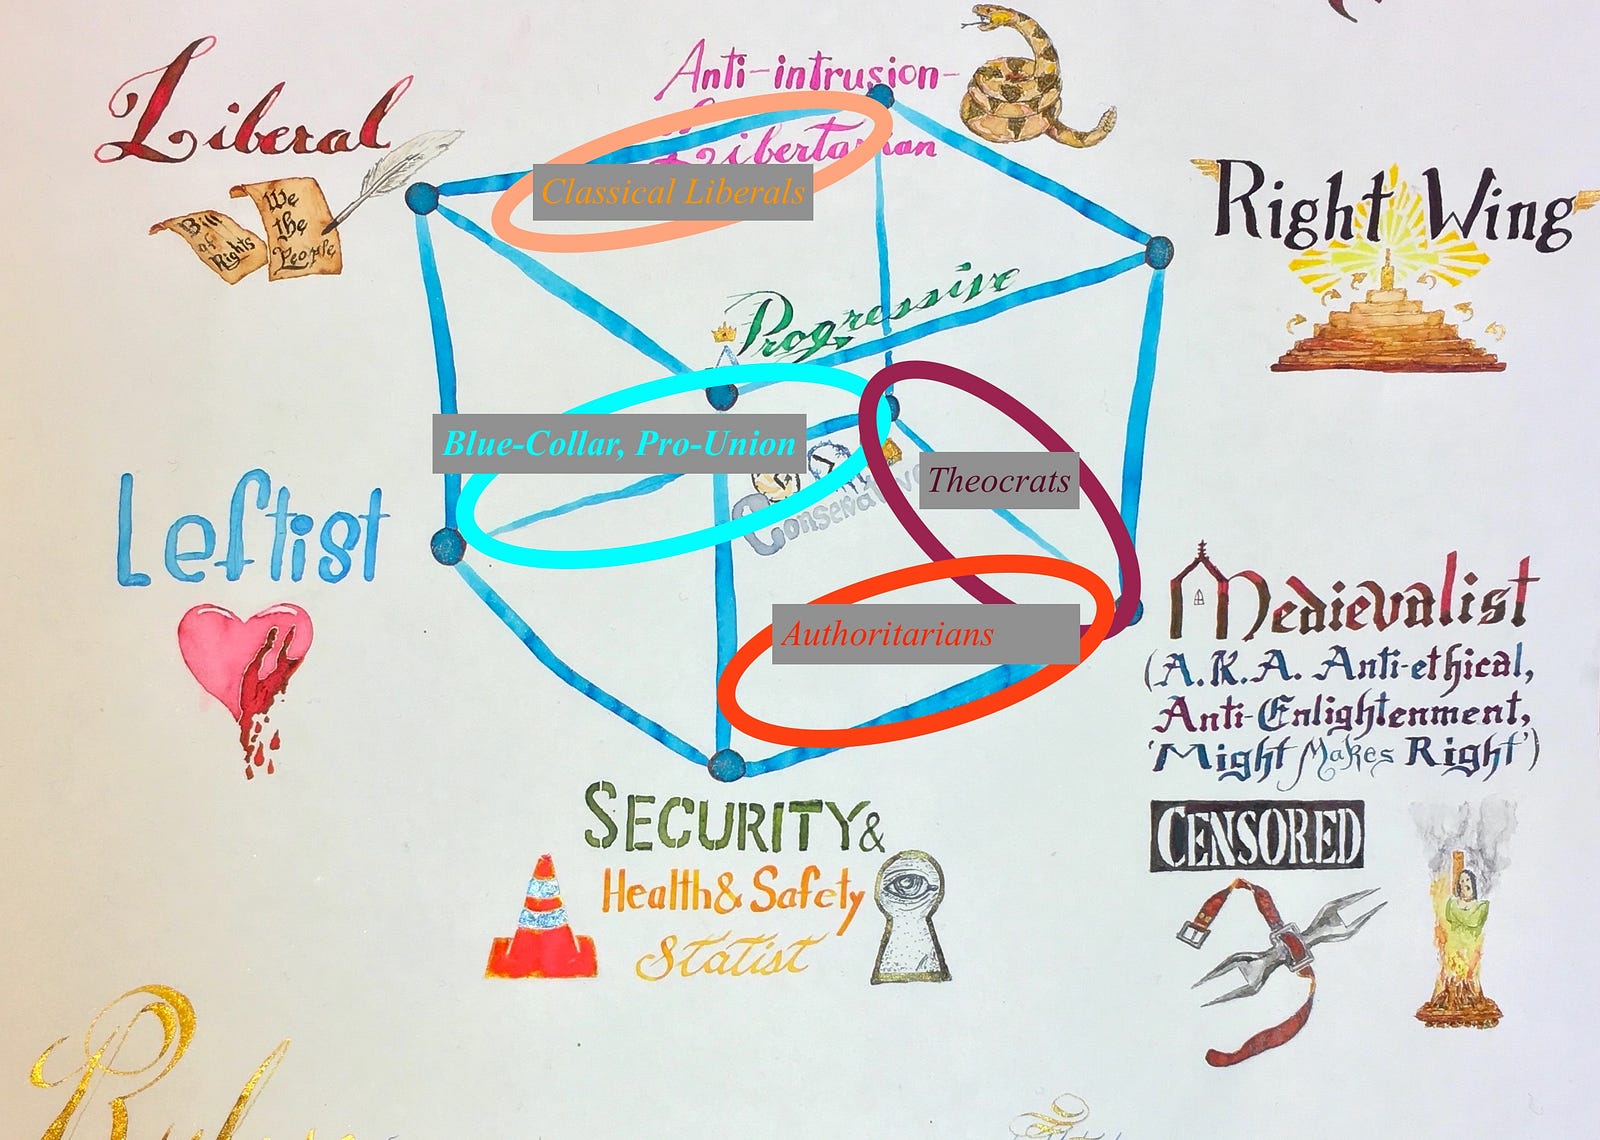 Liberal
Bill
of
Rights
We
the
People
Anti-intrusion-
Libertarian
Classical Liberals
Right Wing
Progressive
Blue-Collar, Pro-Union
Conservative
Theocrats
Leftist
Authoritarians
Medievalist
(A.K.A. Anti-ethical,
Anti-Enlightenment,
'Might Makes Right')
CENSORED
SECURITY &
Health & Safety
Statist